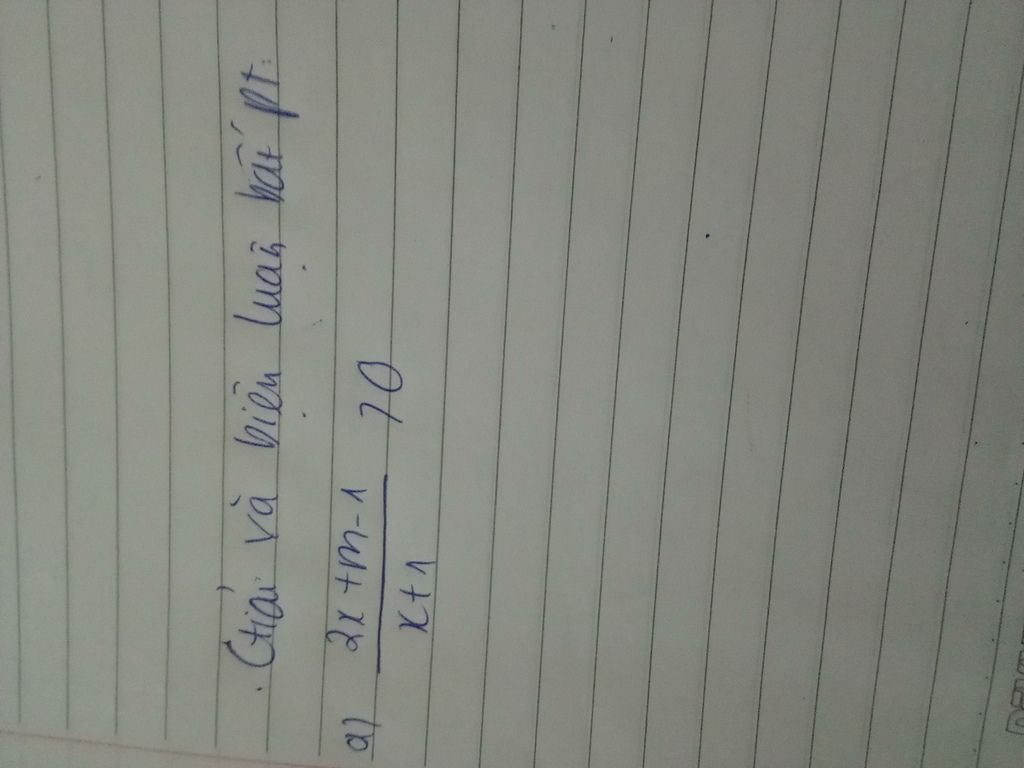 Giải và biện luận bất pt:
a) 2x+m-1
x+1
>0